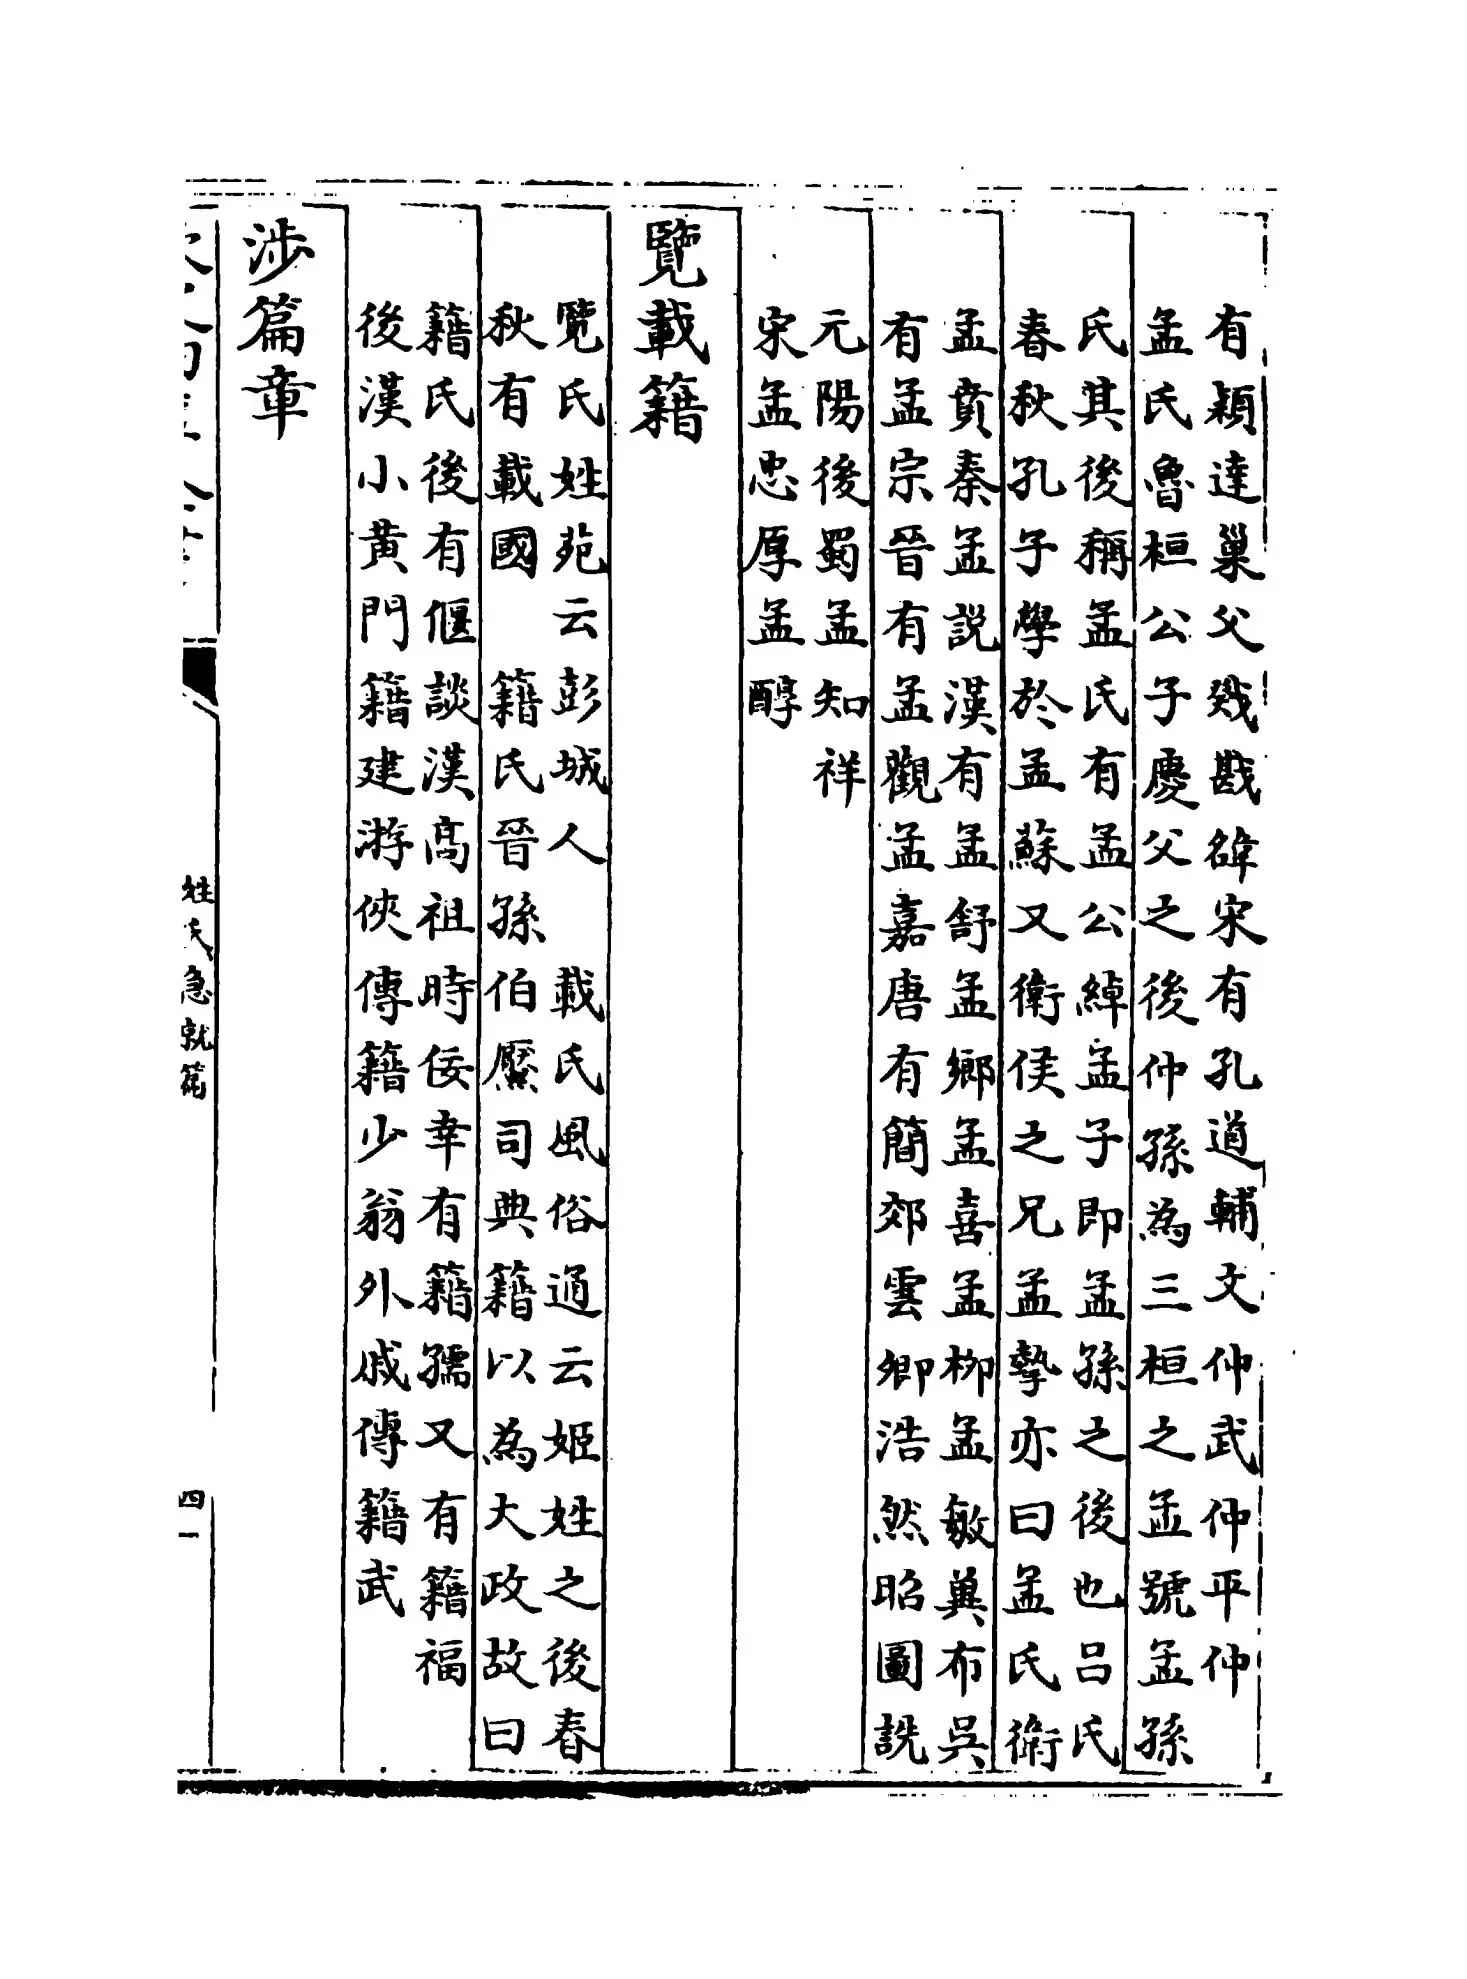 有穎達巢父戣戡緯宋有孔道輔文仲武仲平仲
孟氏魯桓公子慶父之後仲孫為三桓之孟號孟孫
氏其後稱孟氏有孟公綽孟子即孟孫之後也吕氏
春秋孔子學於孟蘇又衛侯之兄孟摯亦曰孟氏衛
孟賁秦孟説漢有孟舒孟鄉孟喜孟柳孟敏冀布吳
有孟宗晉有孟觀孟嘉唐有簡郊雲卿浩然昭圖詵
元陽後蜀孟知祥
宋孟忠厚孟醇
覽載籍
覽氏姓苑云彭城人 載氏風俗通云姬姓之後春
秋有載國 籍氏晉孫伯黶司典籍以為大政故曰
籍氏後有偃談漢高祖時佞幸有籍孺又有籍福
後漢小黄門籍建游俠傳籍少翁外戚傳籍武
涉篇章
姓氏急就篇
四一